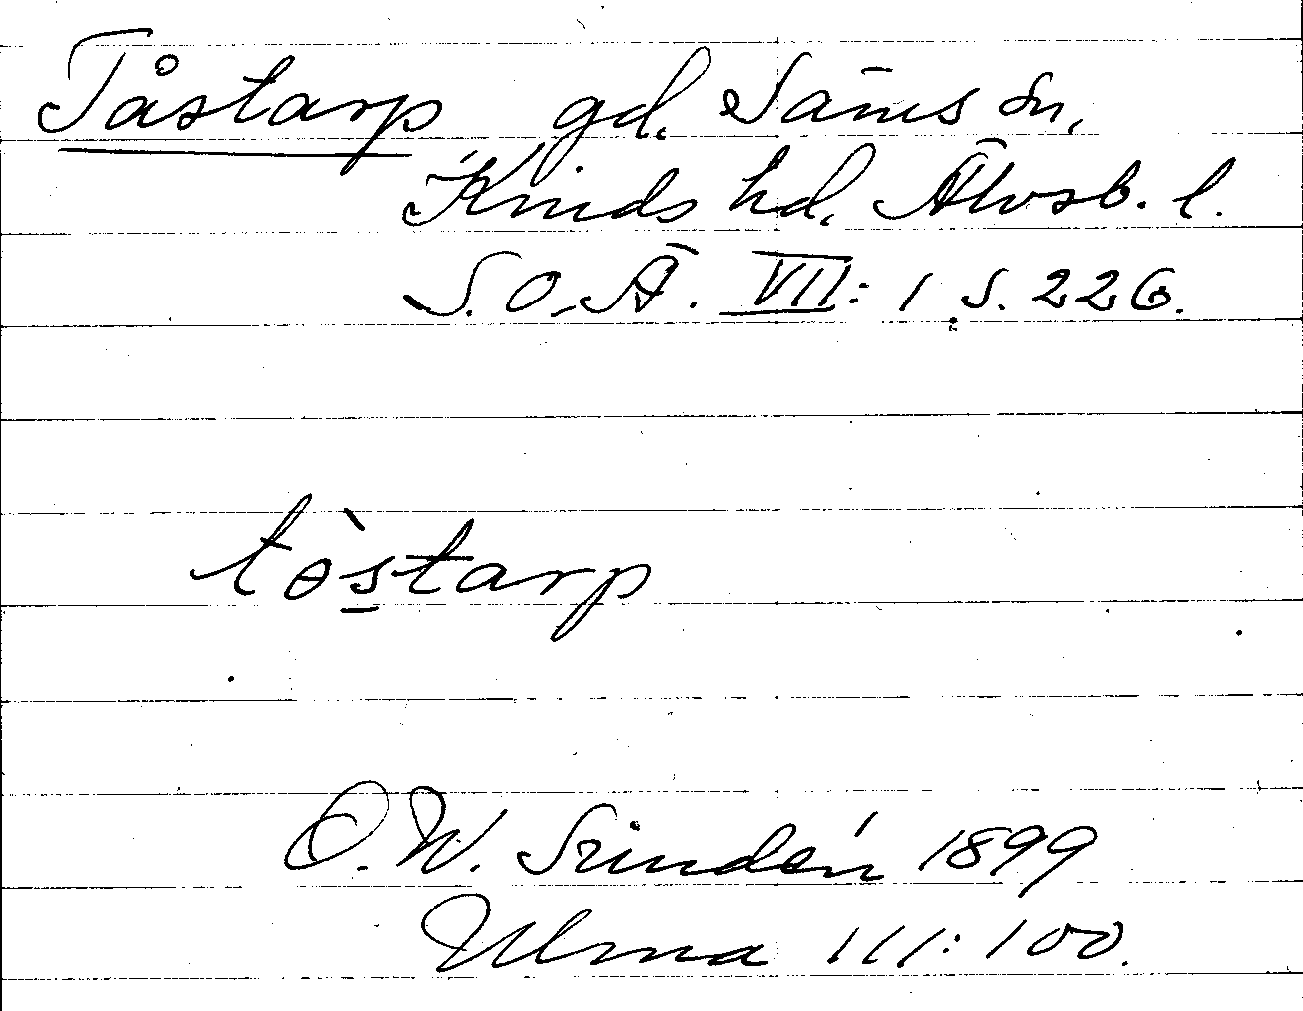 Tåstarp gd. Säms sn,
Kinds hd. Älvsb. l.
S.O.Ä. VII: 1 s. 226.
tòstarp
O.W. Sundén 1899
Ulma 111:100.